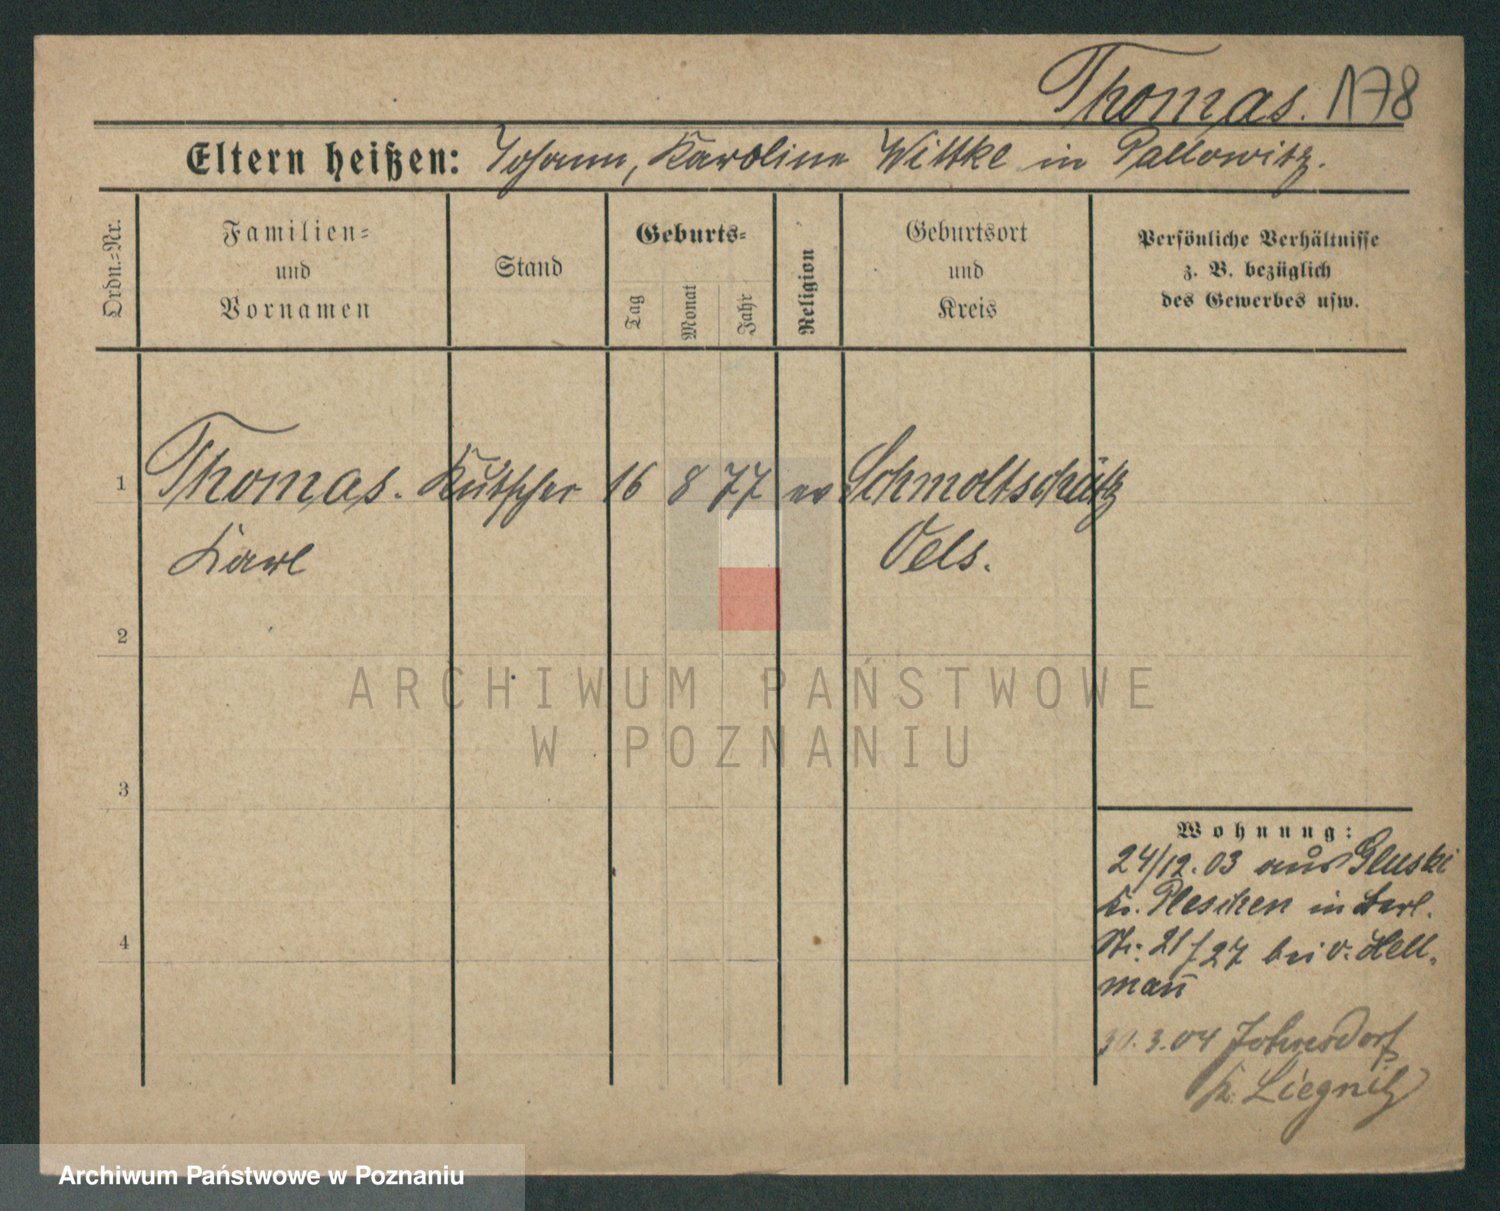 Thomas. 178
Eltern heißen: Johann, Karoline Wittke in Pallowitz.
Ordn.-Nr.
Familien-
und
Vornamen
Stand
Geburts-
Tag
Monat
Jahr
Religion
Geburtsort
und
Kreis
Persönliche Verhältnisse
z. B. bezüglich
des Gewerbes usw.
1 Thomas. Kutscher 16 8 77 ev Schmoltschütz
Karl Oels.
2
3
4
Wohnung:
24/12.03 aus Gluski
Kr. Pleschen in Berl.
Str. 21/27 bei v. Hell-
mann
3.04
Kr. Liegnitz
ARCHIWUM PAŃSTWOWE
W POZNANIU
Archiwum Państwowe w Poznaniu